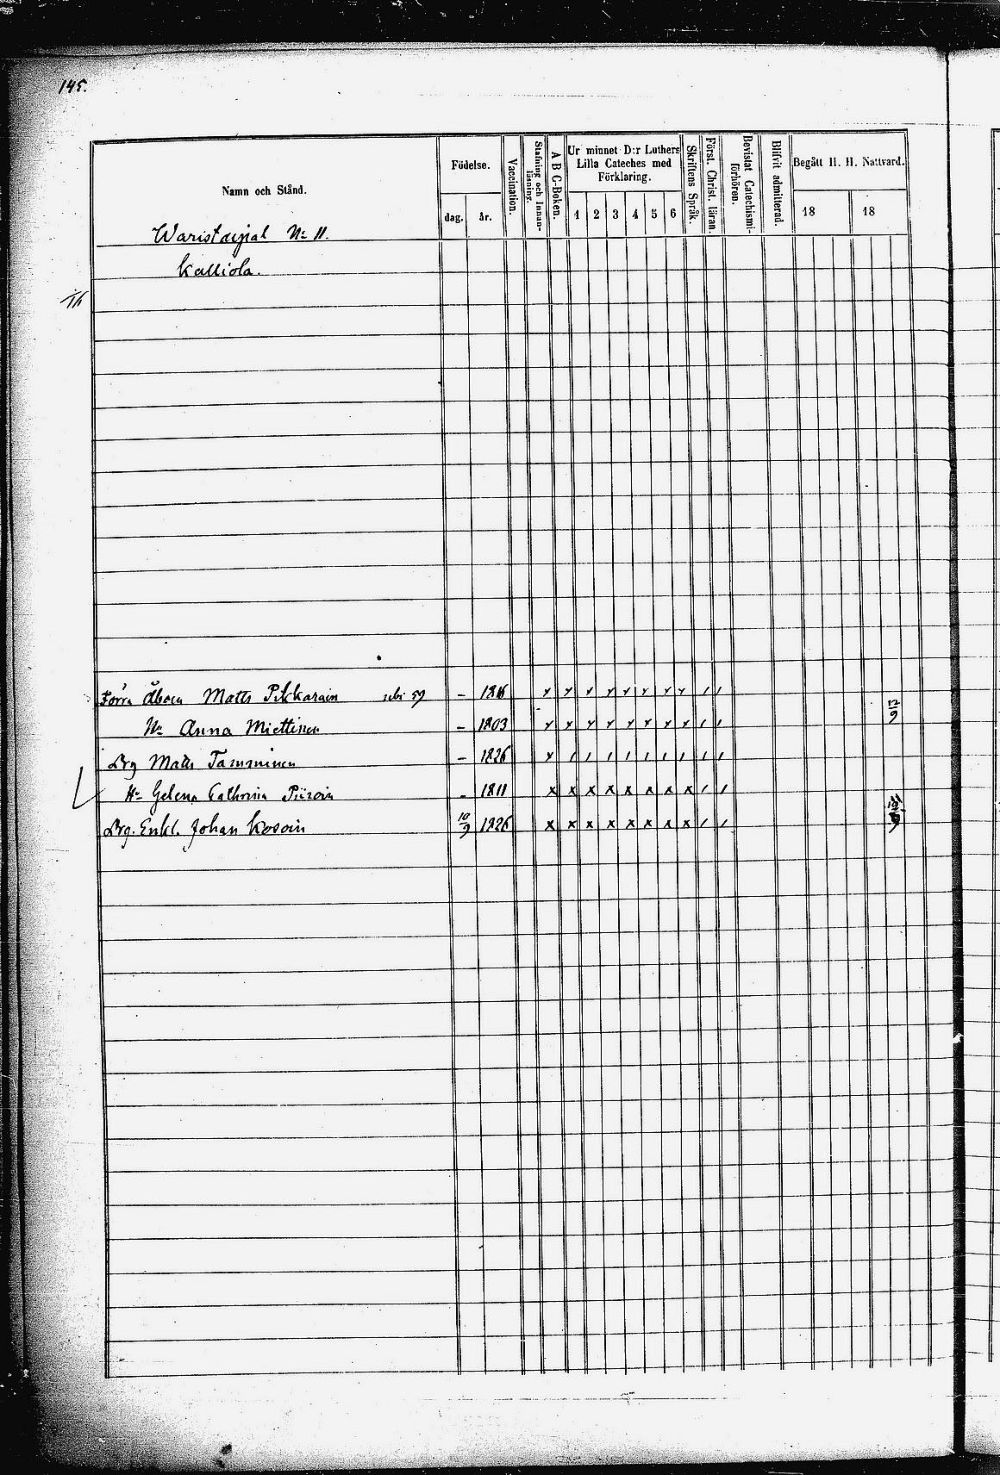 145.
Namn och Stånd.
Födelse.
dag.
år.
Vaccination.
Stafning och Innan-
läsning.
A B C-Boken.
Ur minnet D:r Luthers
Lilla Cateches med
Förklaring.
1 2 3 4 5 6
Skriftens Språk.
Först. Christ. läran.
Bevistat Catechismi-
förhören.
Blifvit admitterad.
Begått H. H. Nattvard.
18 18
N:o 11.
Kalliola.
Förra Åboen Matts Pikkarain 59 – x x x x x x x x / /
H:u Anna Miettinen – 1803 x x x x x x x x / / 12/9
Drg Matts Tamminen – 1826 x / / / / / / / / /
H:u Helena Cathrina Piirain – 1811 x x x x x x x x / /
Drg. Enkl. Johan Kosoin 10/9 1826 x x x x x x x x / /